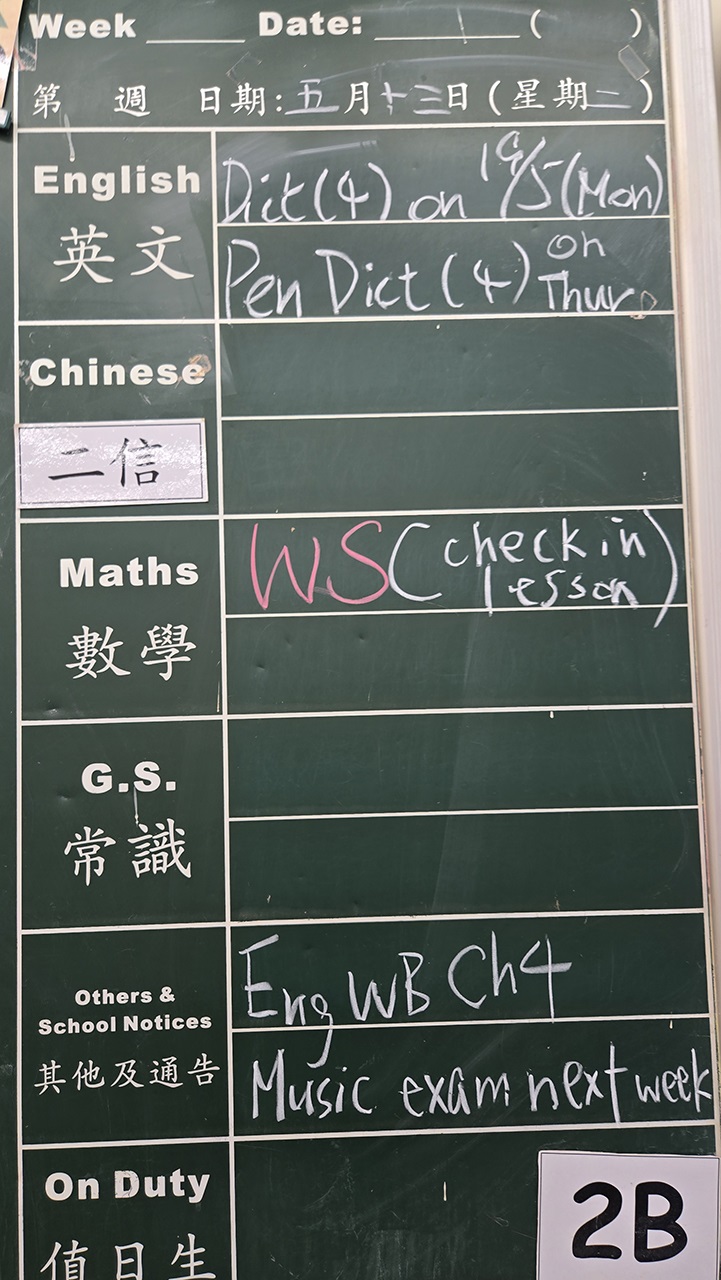 Week ____ Date: ______ ( )
第 週 日期:五月十三日(星期二)
English
英文
Dict(4) on 19/5(Mon)
Pen Dict(4) on Thur
Chinese
二信
Maths
數學
WS(check in lesson)
G.S.
常識
Others &
School Notices
其他及通告
Eng WB Ch4
Music exam next week
On Duty
值日生
2B